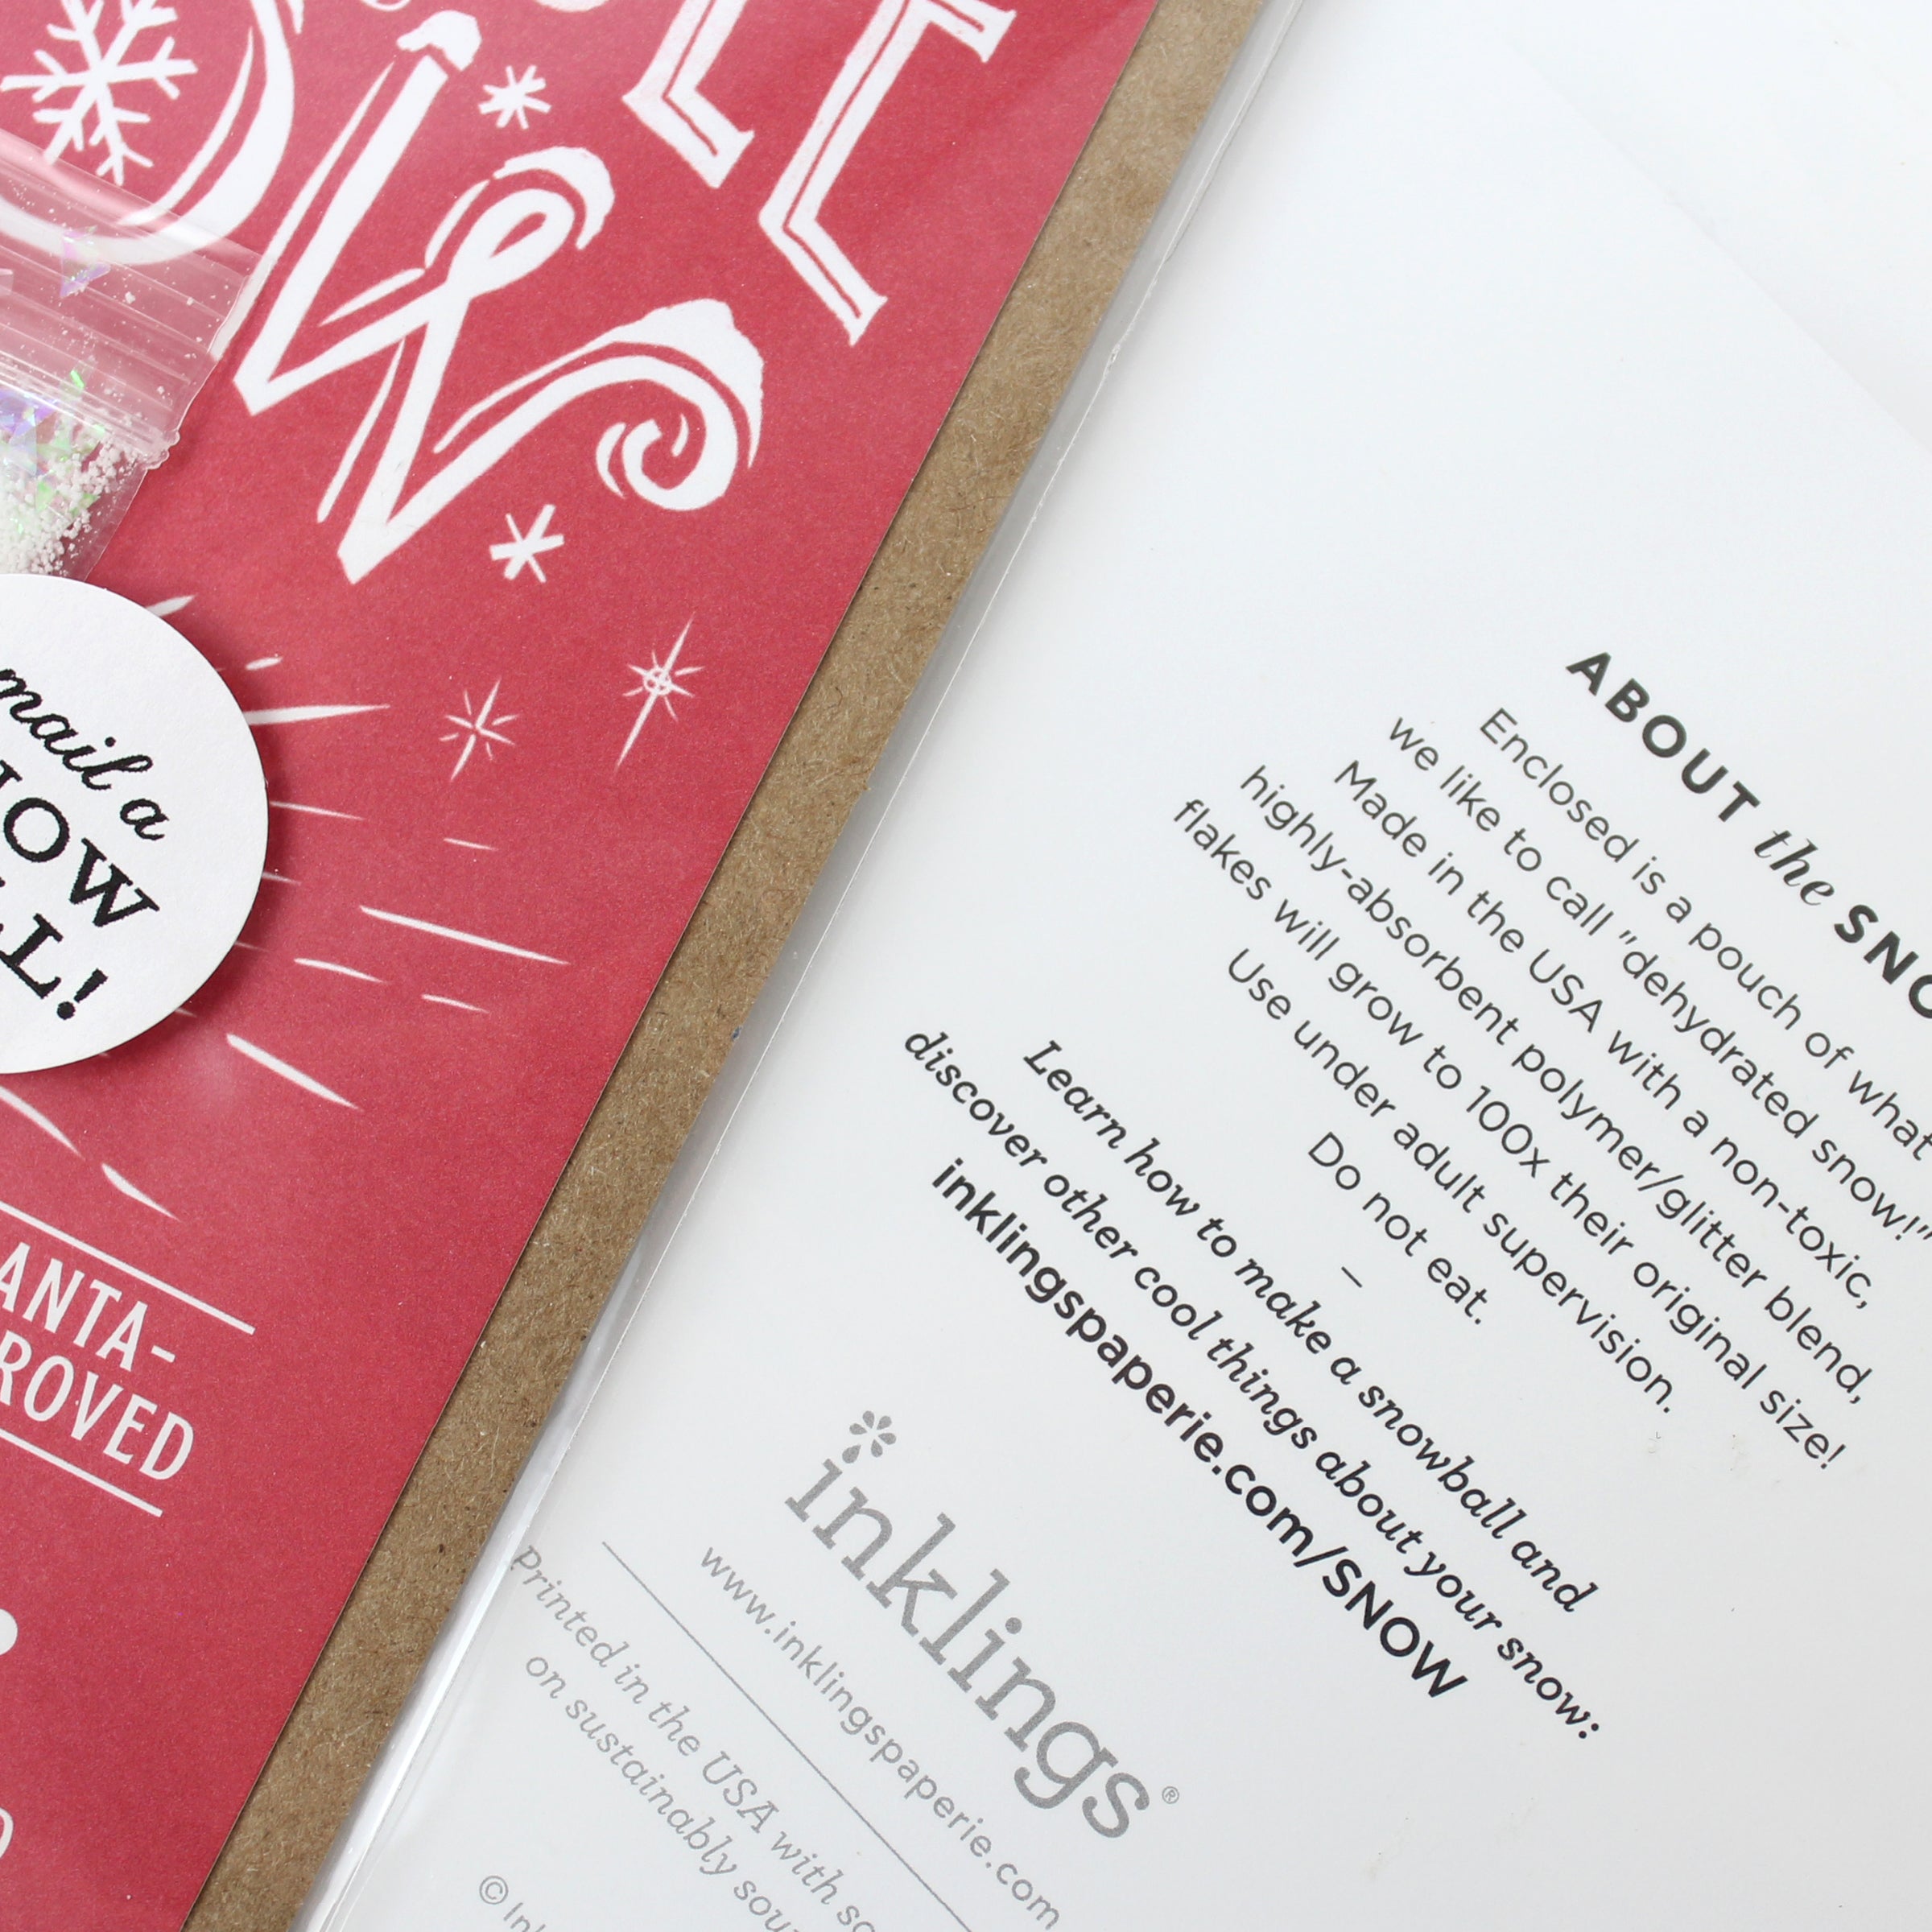 mail a
ANTA-
ROVED
ABOUT the SNO
Enclosed is a pouch of what
we like to call "dehydrated snow!"
Made in the USA with a non-toxic,
highly-absorbent polymer/glitter blend,
flakes will grow to 100x their original size!
Use under adult supervision.
Do not eat.
–
Learn how to make a snowball and
discover other cool things about your snow:
inklingspaperie.com/SNOW
inklings®
www.inklingspaperie.com
Printed in the USA with so
on sustainably sou
© Ink